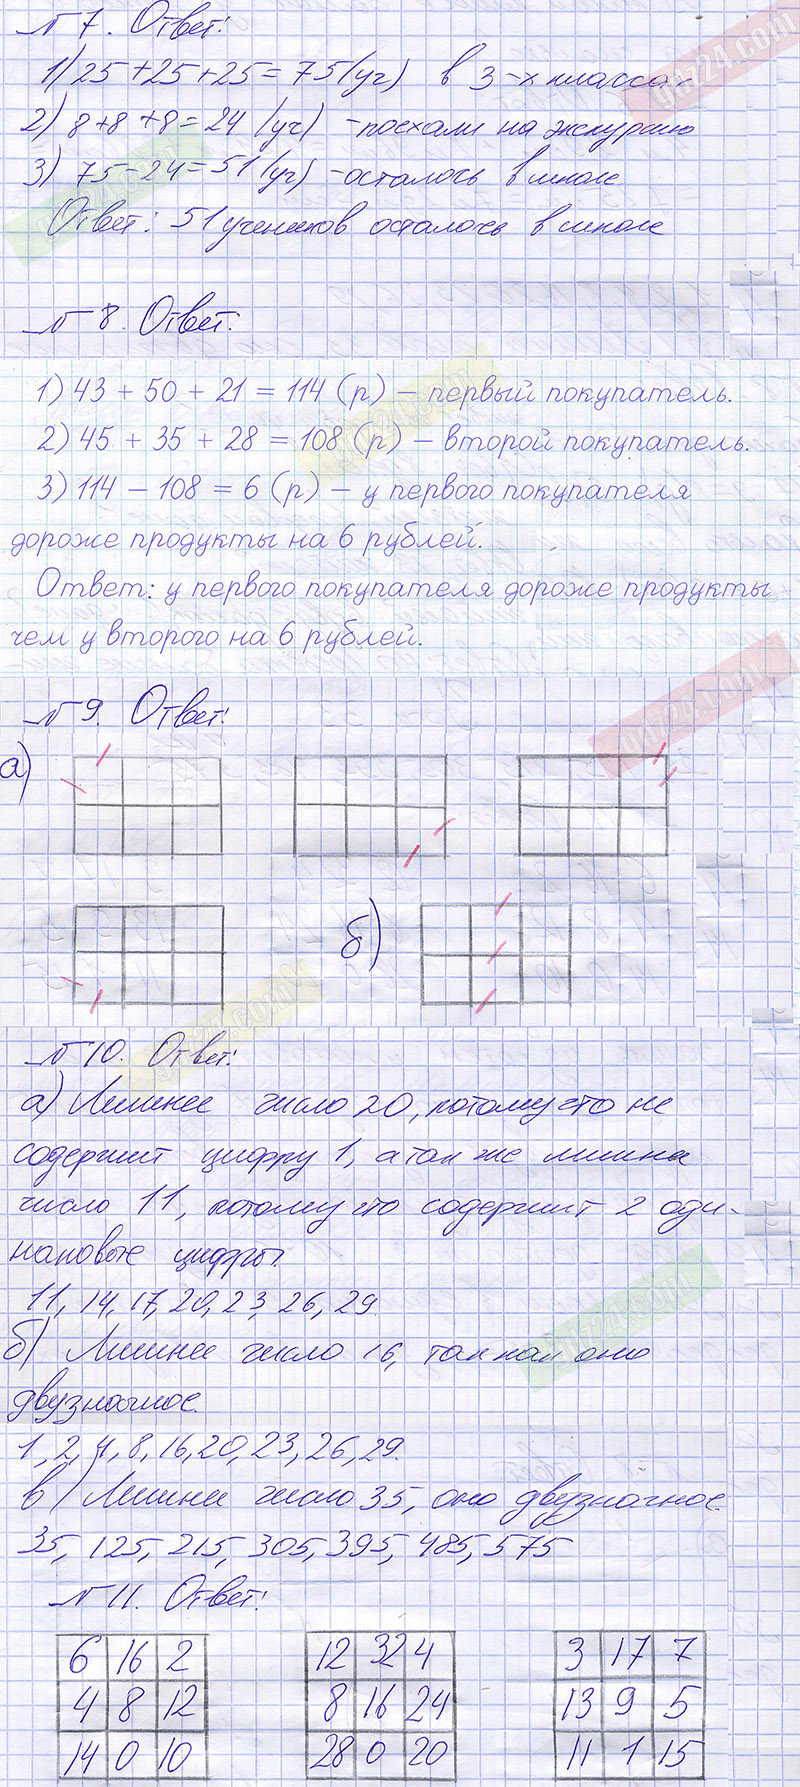 № 7. Ответ:
1) 25+25+25=75(уч) в 3-х классах
2) 8+8+8=24 (уч) -поехали на экскурсию
3) 75-24=51(уч) -осталось в школе
Ответ: 51 учеников осталось в школе
№ 8. Ответ:
1) 43 + 50 + 21 = 114 (р) – первый покупатель.
2) 45 + 35 + 28 = 108 (р) – второй покупатель.
3) 114 – 108 = 6 (р) – у первого покупателя
дороже продукты на 6 рублей.
Ответ: у первого покупателя дороже продукты
чем у второго на 6 рублей.
№ 9. Ответ:
а)
б)
№ 10. Ответ:
а) Лишнее число 20, потому что не
содержит цифру 1, а так же лишнее
число 11, потому что содержит 2 оди-
наковые цифры.
11, 14, 17, 20, 23, 26, 29.
б) Лишнее число 16, так как оно
двузначное.
1, 2, 4, 8, 16, 20, 23, 26, 29.
в) Лишнее число 35, оно двузначное.
35, 125, 215, 305, 395, 485, 575
№ 11. Ответ:
6 16 2 12 32 4 3 17 7
4 8 12 8 16 24 13 9 5
14 0 10 28 0 20 11 1 15